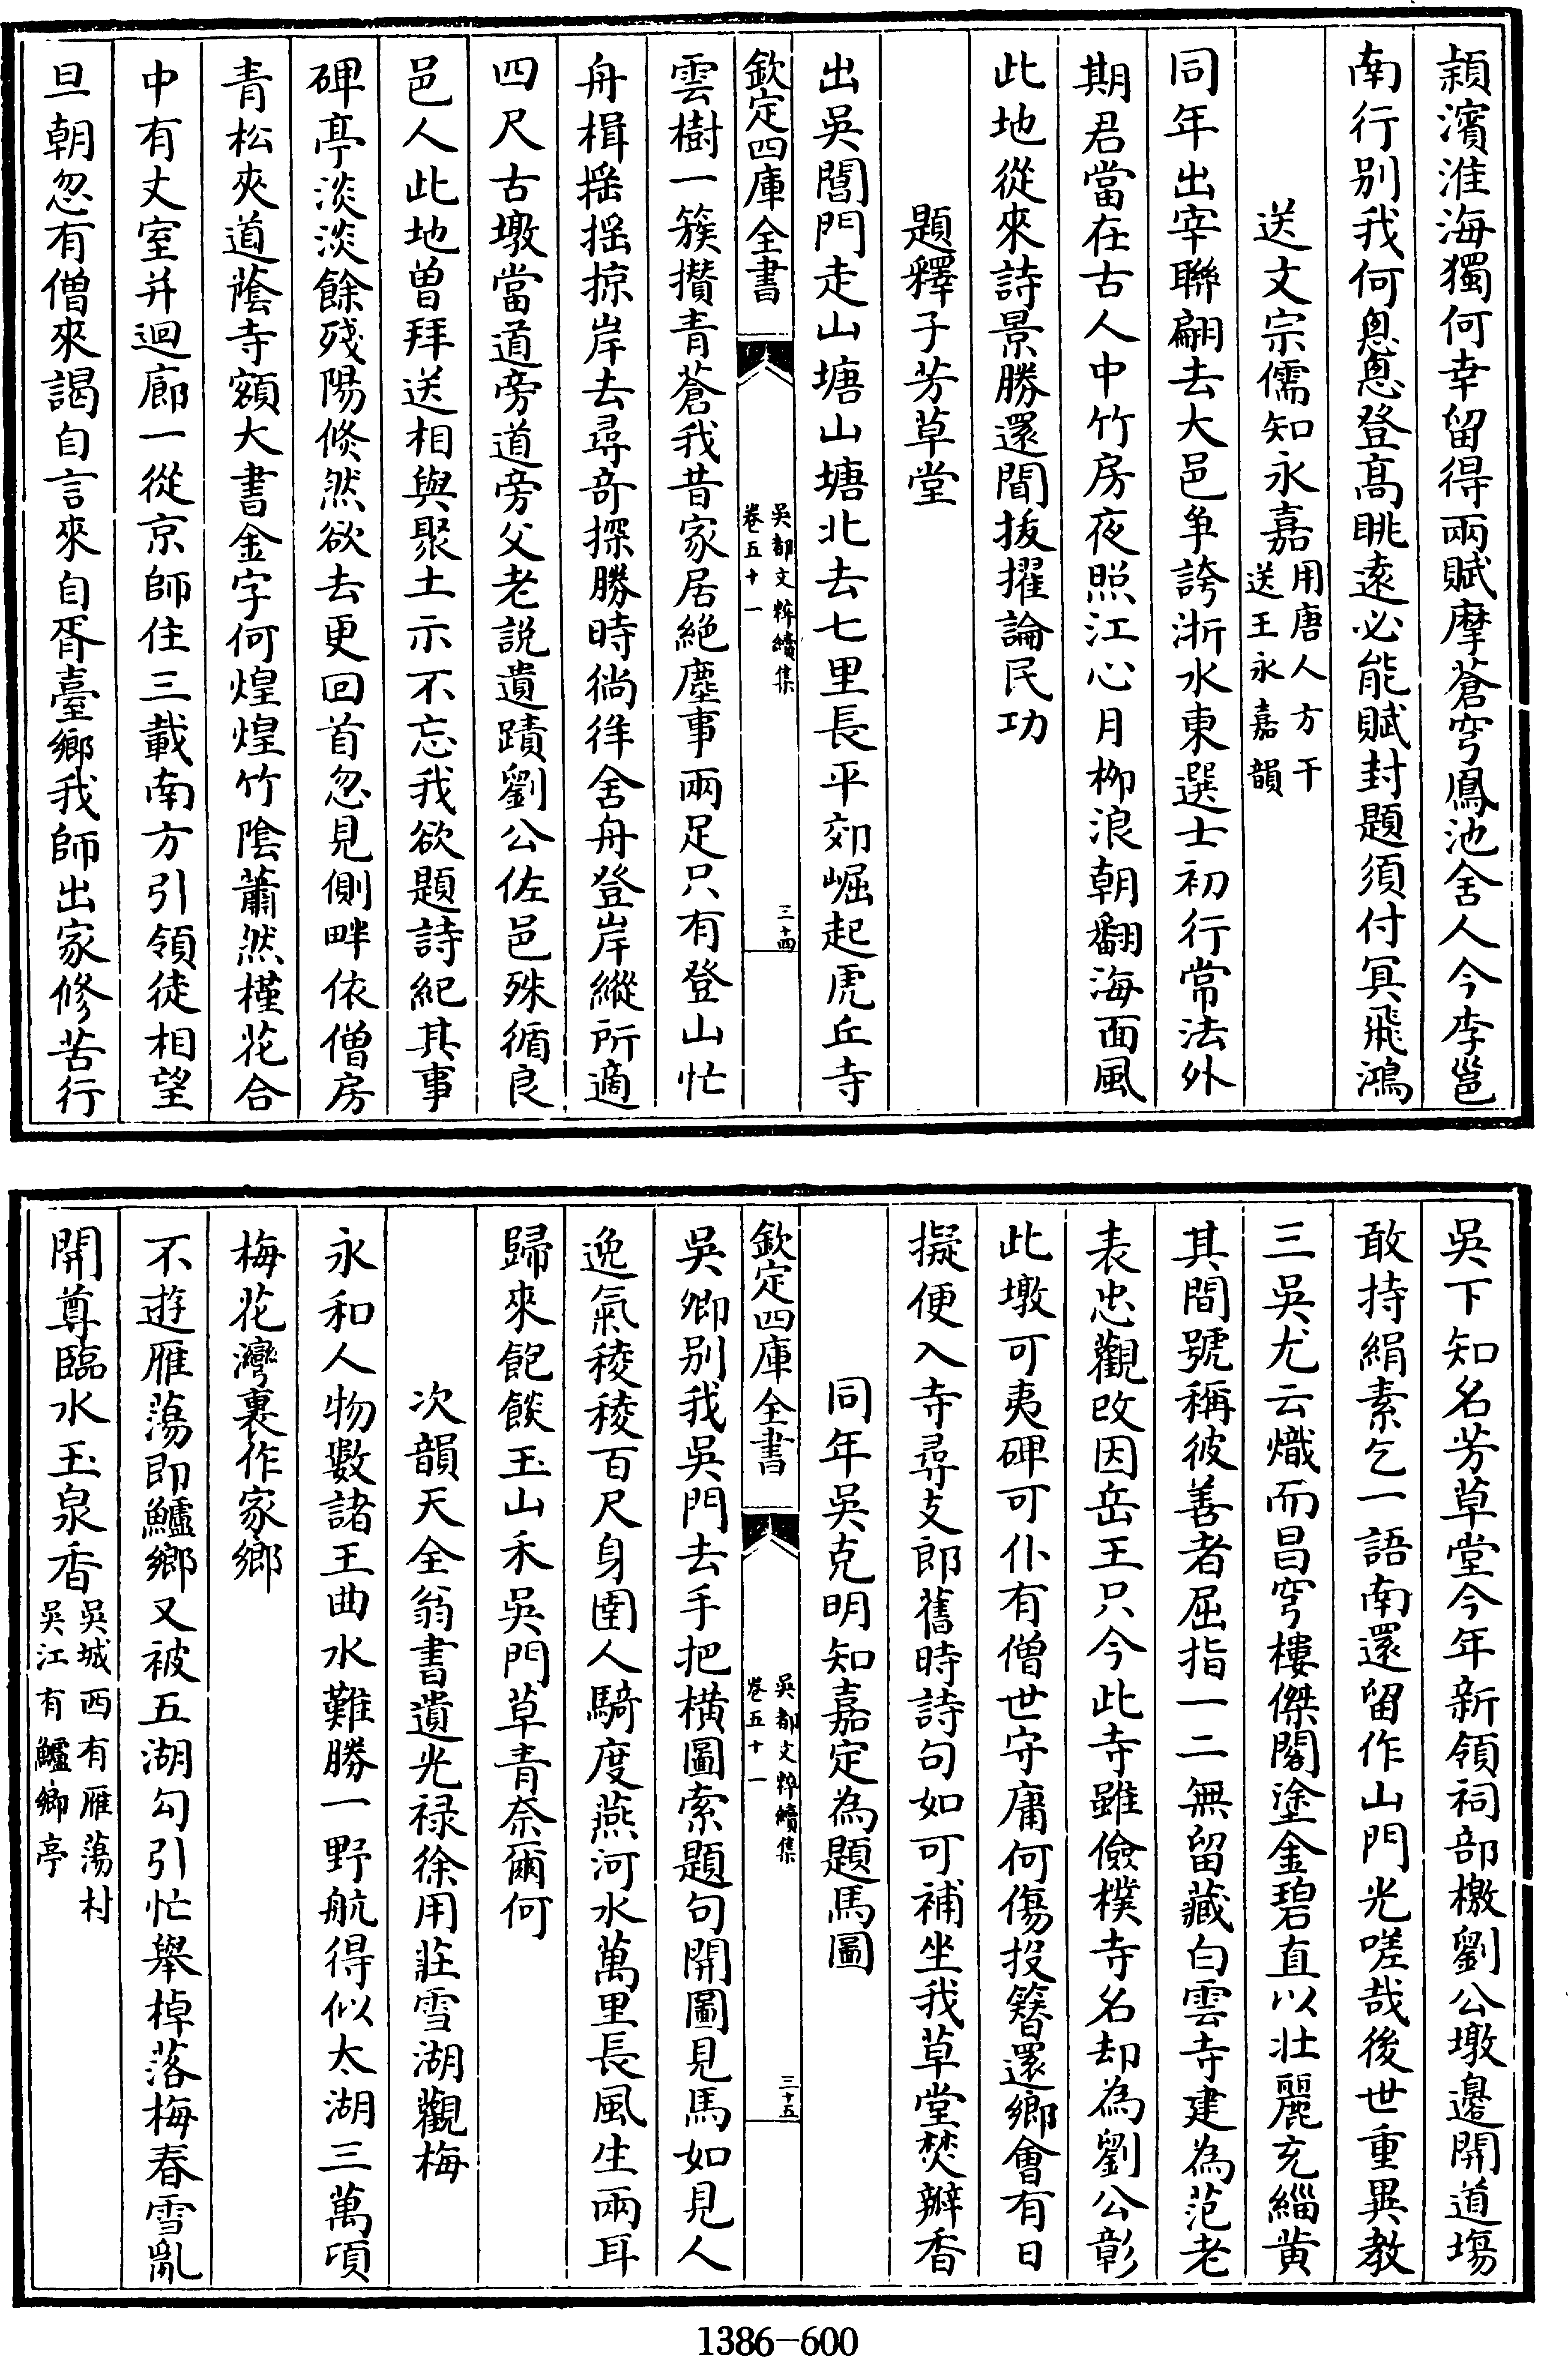 頴濱淮海獨何幸留得兩賦摩蒼穹鳳池舍人今李邕
南行别我何悤悤登髙眺遠必能賦封題須付冥飛鴻
送文宗儒知永嘉用唐人方干送王永嘉韻
同年出宰聯翩去大邑争誇浙水東選士初行常法外
期君當在古人中竹房夜照江心月柳浪朝翻海面風
此地從來詩景勝還聞拔擢論民功
題釋子芳草堂
出吳閶門走山塘山塘北去七里長平郊崛起虎丘寺
欽定四庫全書
吳都文粹續集
卷五十一
三十四
雲樹一簇攅青蒼我昔家居絶塵事兩足只有登山忙
舟楫揺揺掠岸去尋竒探勝時徜徉舍舟登岸縱所適
四尺古墩當道旁道旁父老説遺蹟劉公佐邑殊循良
邑人此地曽拜送相與聚土示不忘我欲題詩紀其事
碑亭淡淡餘殘陽倐然欲去更回首忽見側畔依僧房
青松夾道蔭寺額大書金字何煌煌竹陰蕭然槿花合
中有丈室并迴廊一從京師住三載南方引領徒相望
旦朝忽有僧來謁自言來自胥臺鄉我師出家修苦行
吳下知名芳草堂今年新領祠部檄劉公墩邊開道塲
敢持絹素乞一語南還留作山門光嗟哉後世重異教
三吳尤云熾而昌穹樓傑閣塗金碧直以壯麗充緇黄
其間號稱彼善者屈指一二無留藏白雲寺建為范老
表忠觀改因岳王只今此寺雖儉樸寺名却為劉公彰
此墩可夷碑可仆有僧世守庸何傷投簪還鄉會有日
擬便入寺尋支郎舊時詩句如可補坐我草堂焚瓣香
同年吳克明知嘉定為題馬圖
欽定四庫全書
吳都文粹續集
卷五十一
三十五
吳卿别我吳門去手把横圖索題句開圖見馬如見人
逸氣稜稜百尺身圉人騎度燕河水萬里長風生兩耳
歸來飽餤玉山禾吳門草青奈爾何
次韻天全翁書遺光禄徐用莊雪湖觀梅
永和人物數諸王曲水難勝一野航得似太湖三萬頃
梅花灣裏作家鄉
不遊雁蕩即鱸鄉又被五湖勾引忙舉棹落梅春雪亂
開尊臨水玉泉香吳城西有雁蕩村吳江有鱸鄉亭
1386-600